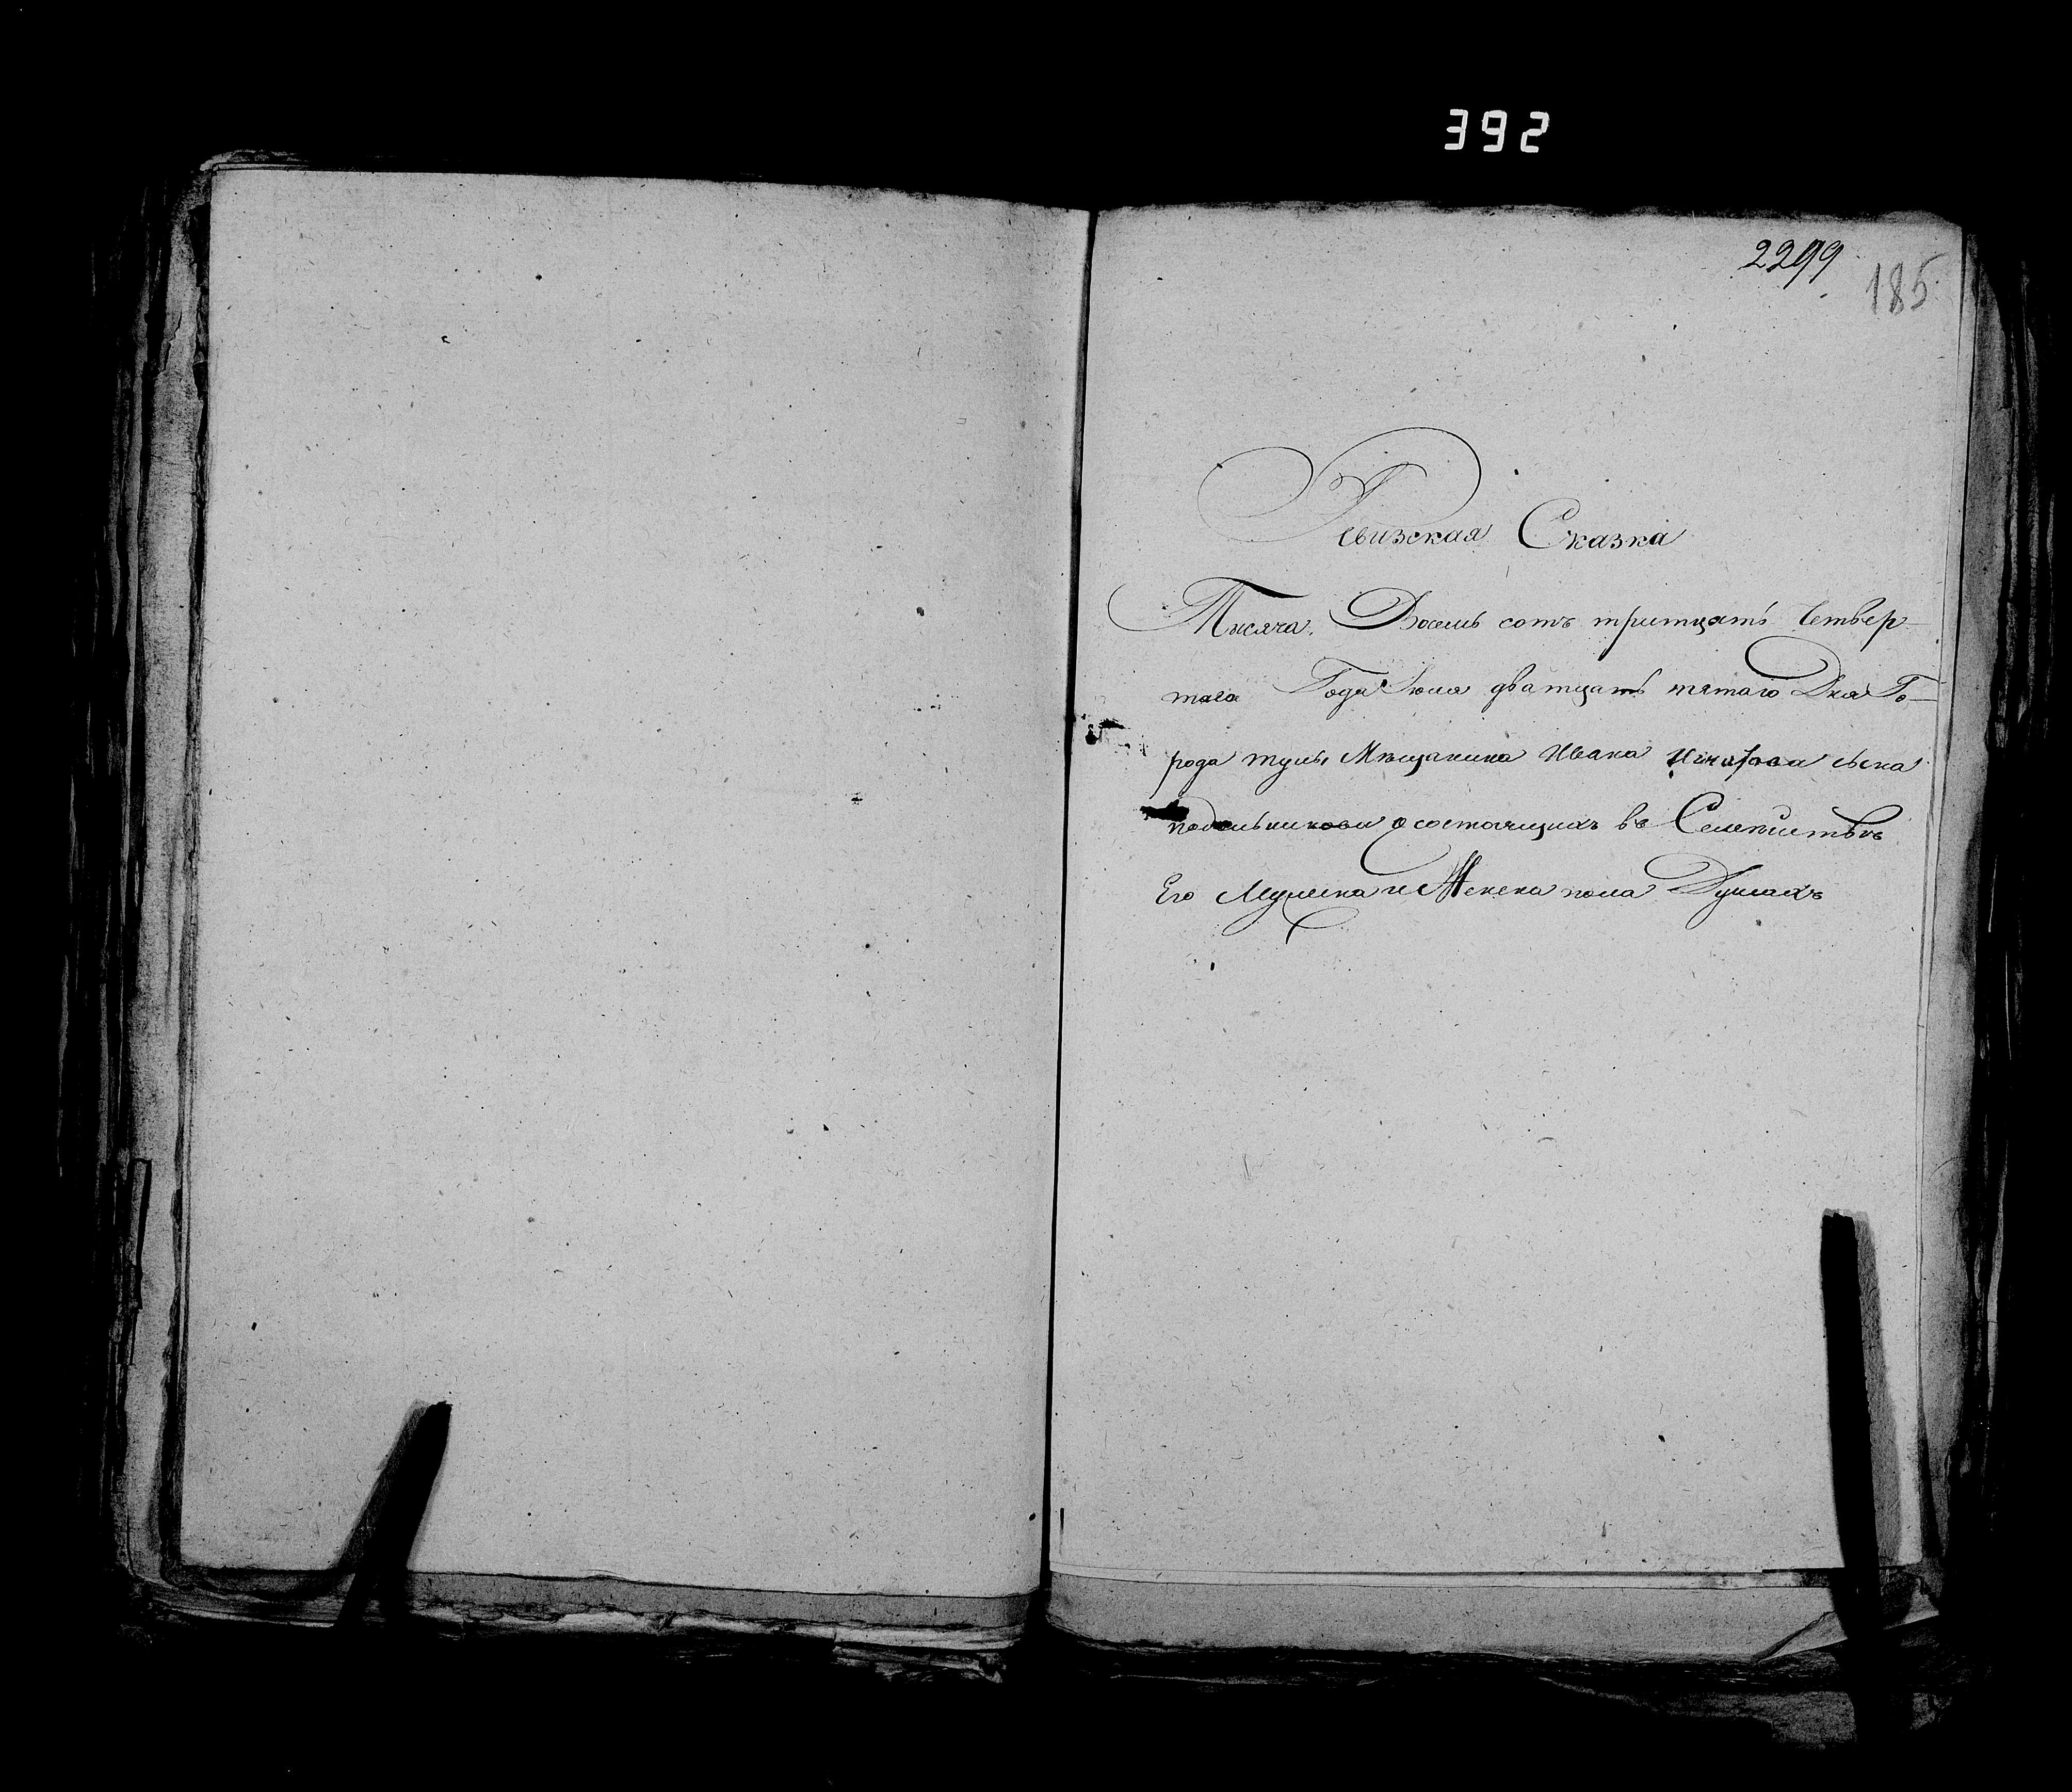 392
2299
185
Ревизская Сказка
Тысяча Восемь сотъ тритцать Четвер
таго Года Июля дватцать пятаго Дня Го-
рода тулы Мещанина Ивана сына
о состоящихъ въ Семействе
Его Мужеска и Женска пола Душахъ